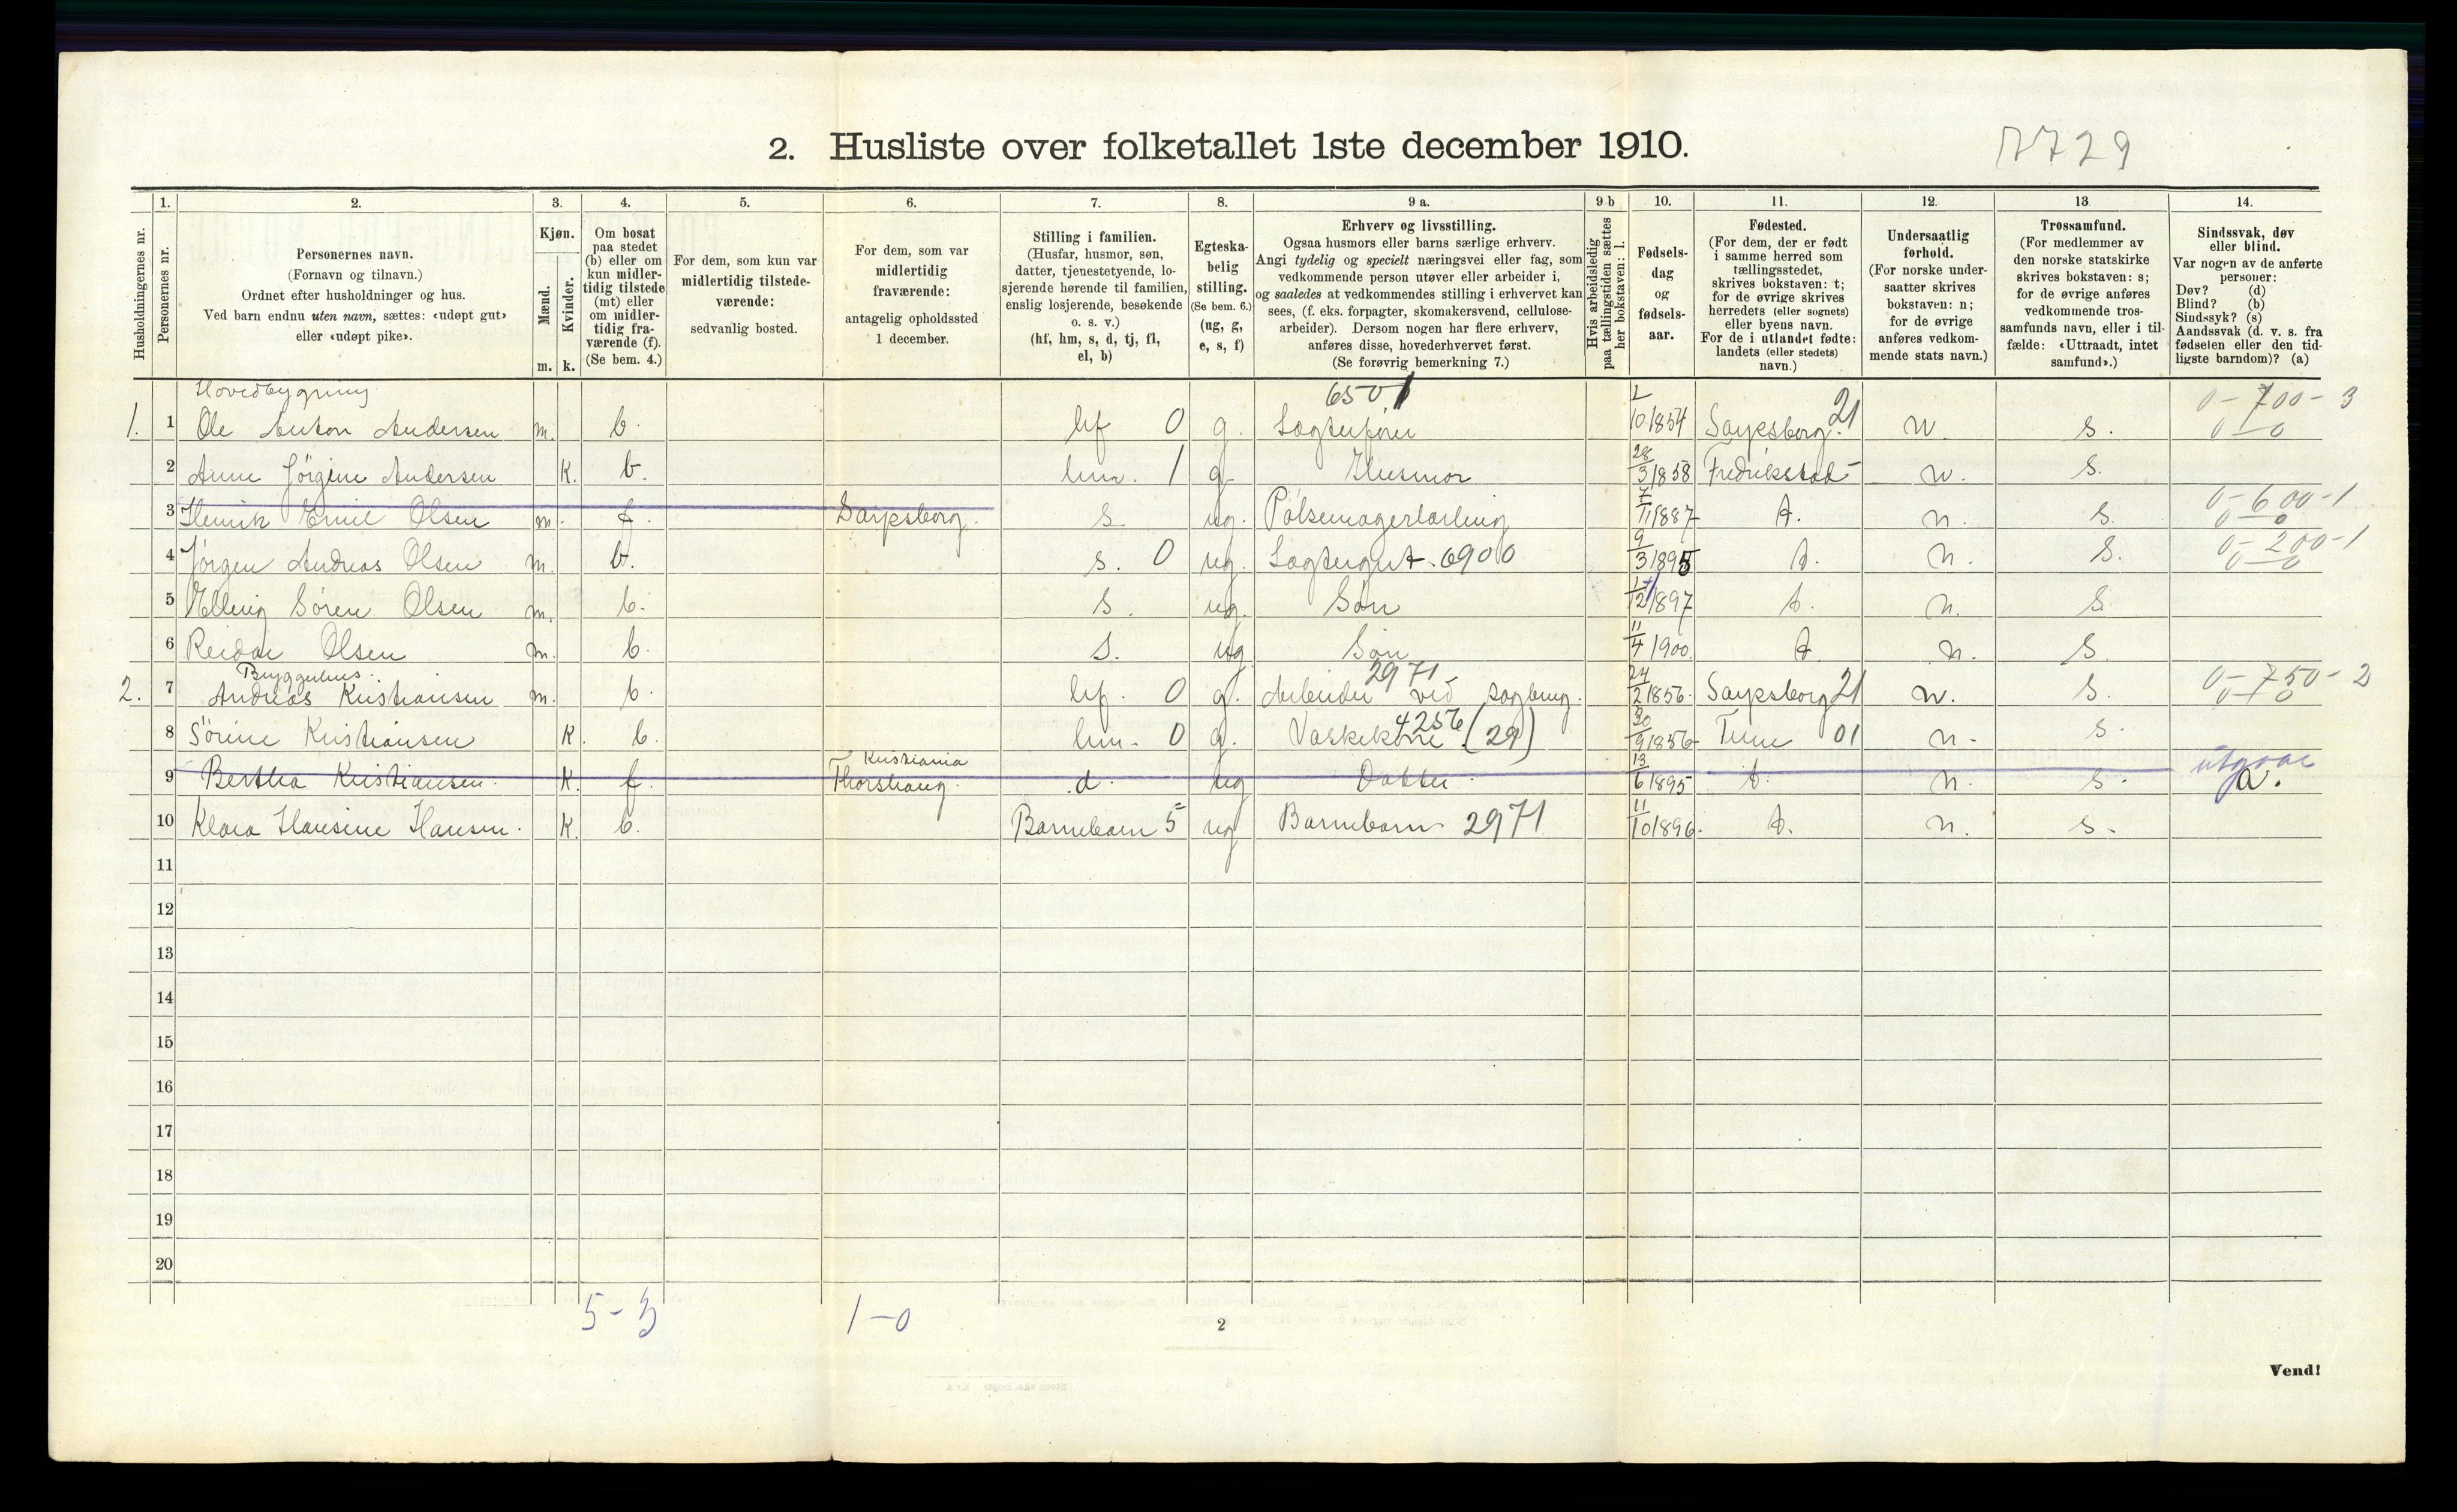 2. Husliste over folketallet 1ste december 1910.
7729
1. 2. 3. 4. 5. 6. 7. 8. 9 a. 9 b 10. 11. 12. 13 14.
Husholdningernes nr.
Personernes nr.
Personernes navn.
(Fornavn og tilnavn.)
Ordnet efter husholdninger og hus.
Ved barn endnu uten navn, sættes: «udøpt gut»
eller «udøpt pike».
Kjøn.
Mænd.
Kvinder.
m. k.
Om bosat
paa stedet
(b) eller om
kun midler-
tidig tilstede
(mt) eller
om midler-
tidig fra-
værende (f).
(Se bem. 4.)
For dem, som kun var
midlertidig tilstede-
værende:
sedvanlig bosted.
For dem, som var
midlertidig
fraværende:
antagelig opholdssted
1 december.
Stilling i familien.
(Husfar, husmor, søn,
datter, tjenestetyende, lo-
sjerende hørende til familien,
enslig losjerende, besøkende
o. s. v.)
(hf, hm, s, d, tj, fl,
el, b)
Egteska-
belig
stilling.
(Se bem. 6.)
(ug, g,
e, s, f)
Erhverv og livsstilling.
Ogsaa husmors eller barns særlige erhverv.
Angi tydelig og specielt næringsvei eller fag, som
vedkommende person utøver eller arbeider i,
og saaledes at vedkommendes stilling i erhvervet kan
sees, (f. eks. forpagter, skomakersvend, cellulose-
arbeider). Dersom nogen har flere erhverv,
anføres disse, hovederhvervet først.
(Se forøvrig bemerkning 7.)
Hvis arbeidsledig
paa tællingstiden sættes
her bokstaven: l.
Fødsels-
dag
og
fødsels-
aar.
Fødested.
(For dem, der er født
i samme herred som
tællingsstedet,
skrives bokstaven: t;
for de øvrige skrives
herredets (eller sognets)
eller byens navn.
For de i utlandet fødte:
landets (eller stedets)
navn.)
Undersaatlig
forhold.
(For norske under-
saatter skrives
bokstaven: n;
for de øvrige
anføres vedkom-
mende stats navn.)
Trossamfund.
(For medlemmer av
den norske statskirke
skrives bokstaven: s;
for de øvrige anføres
vedkommende tros-
samfunds navn, eller i til-
fælde: «Uttraadt, intet
samfund».)
Sindssvak, døv
eller blind.
Var nogen av de anførte
personer:
Døv? (d)
Blind? (b)
Sindssyk? (s)
Aandssvak (d. v. s. fra
fødselen eller den tid-
ligste barndom)? (a)
Hovedbygning 6501 0-700-3
1. 1 Ole Anton Andersen m. b. hf 0 g. 10/1854 Sarpsborg 21 n. s. 0-0
2 Anne Jörgine Andersen k. b. hm. 1 g. Husmor 28/3 1858 Fredrikstad n. s.
3 Henrik Emil Olsen m. f. Sarpsborg. s. ug. Pølsemagerlærling 7/11 1887 t. n. s. 0-600-1 0-0
4 Jörgen Andreas Olsen m. b. s. 0 ug. Slagtergut 6900 9/3 1895 t. n. s. 0-200-1 0-0
5 Elling Sören Olsen m. b. s. ug. Søn 12/1897 t. n. s.
6 Reidar Olsen m. b. s. ug Søn 11/4 1900. t. n. s.
Bryggerhus. 2971
2. 7 Andreas Kristiansen m. b. hf. 0 g. Arbeider ved sagbrug. 24/2 1856. Sarpsborg 21 n. s. 0-750-2 0-0
8 Sörine Kristiansen k. b. hm. 0 g. Vaskekone 4256 (29) 30/9 1856 Tune 01 n. s.
Kristiania utgaar
9 Bertha Kristiansen. k. f. Thorshaug. d. ug Datter 13/6 1895 t. n. s. a.
10 Klara Hansine Hansen. k. b. Barnebarn 5 ug Barnebarn 2971 11/10 1896. t. n. s.
11
12
13
14
15
16
17
18
19
20
5-3 1-0
2
Vend!